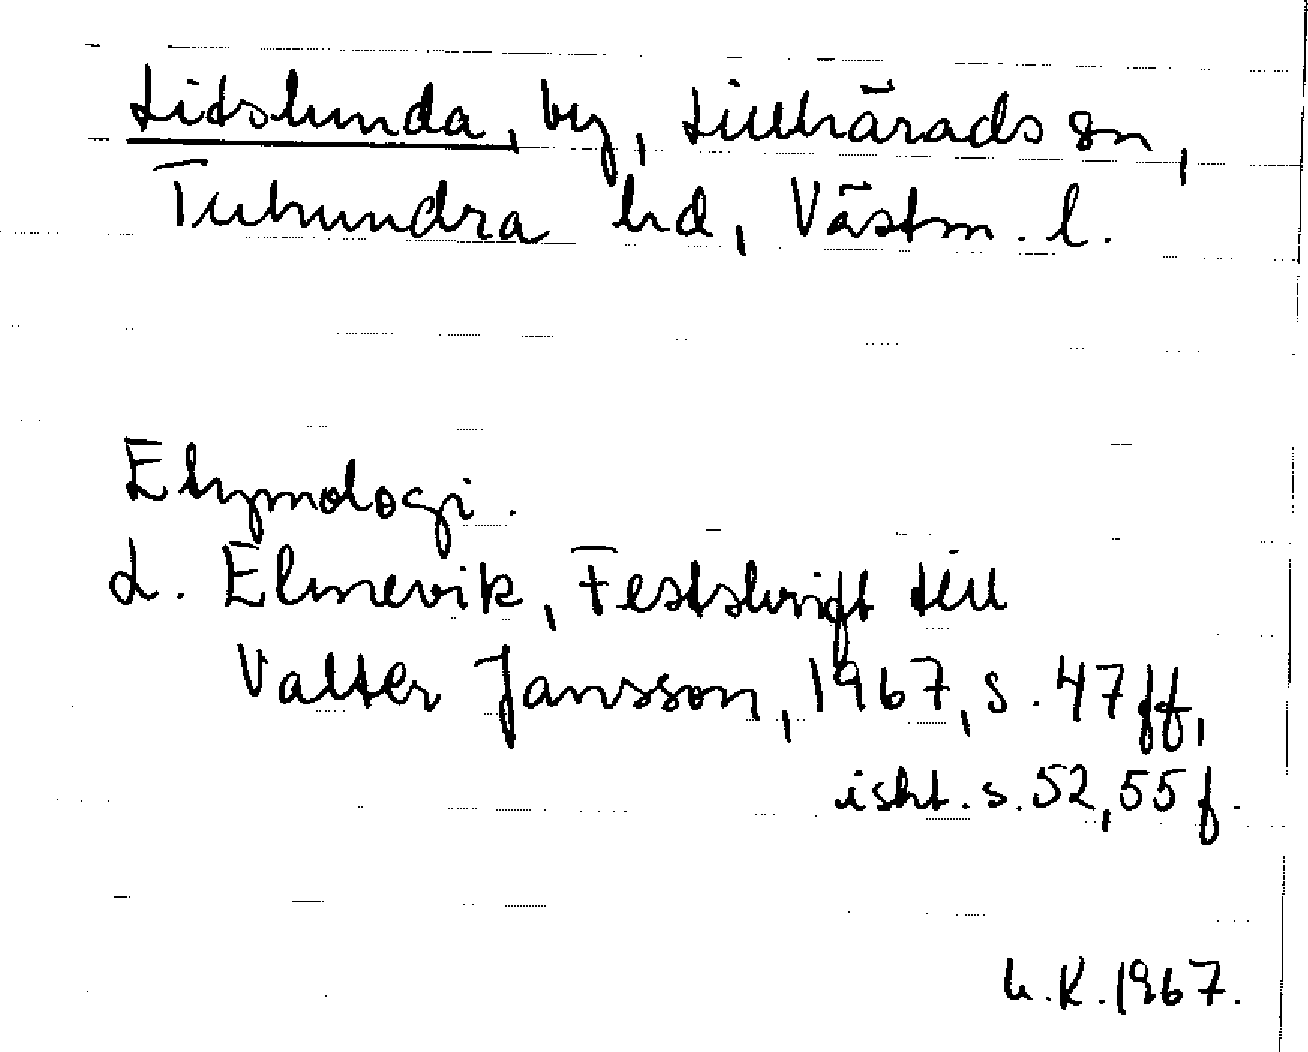 Lidslunda, by, Lillhärads sn,
Tuhundra hd, Västm. l.
Etymologi.
L. Elmevik, Festskrift till
Valter Jansson, 1967, s. 47 ff,
isht. s. 52, 55 f.
K. 1967.